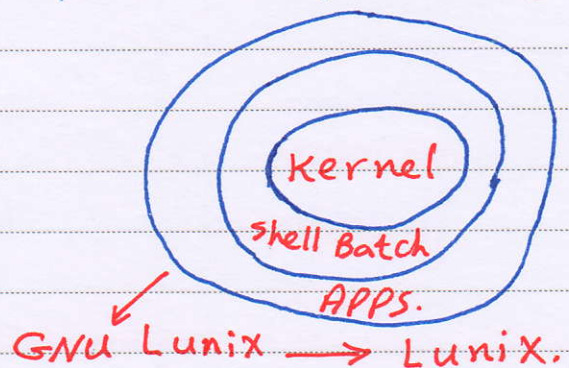 Kernel
Shell Batch
APPS.
GNU Lunix → Lunix.